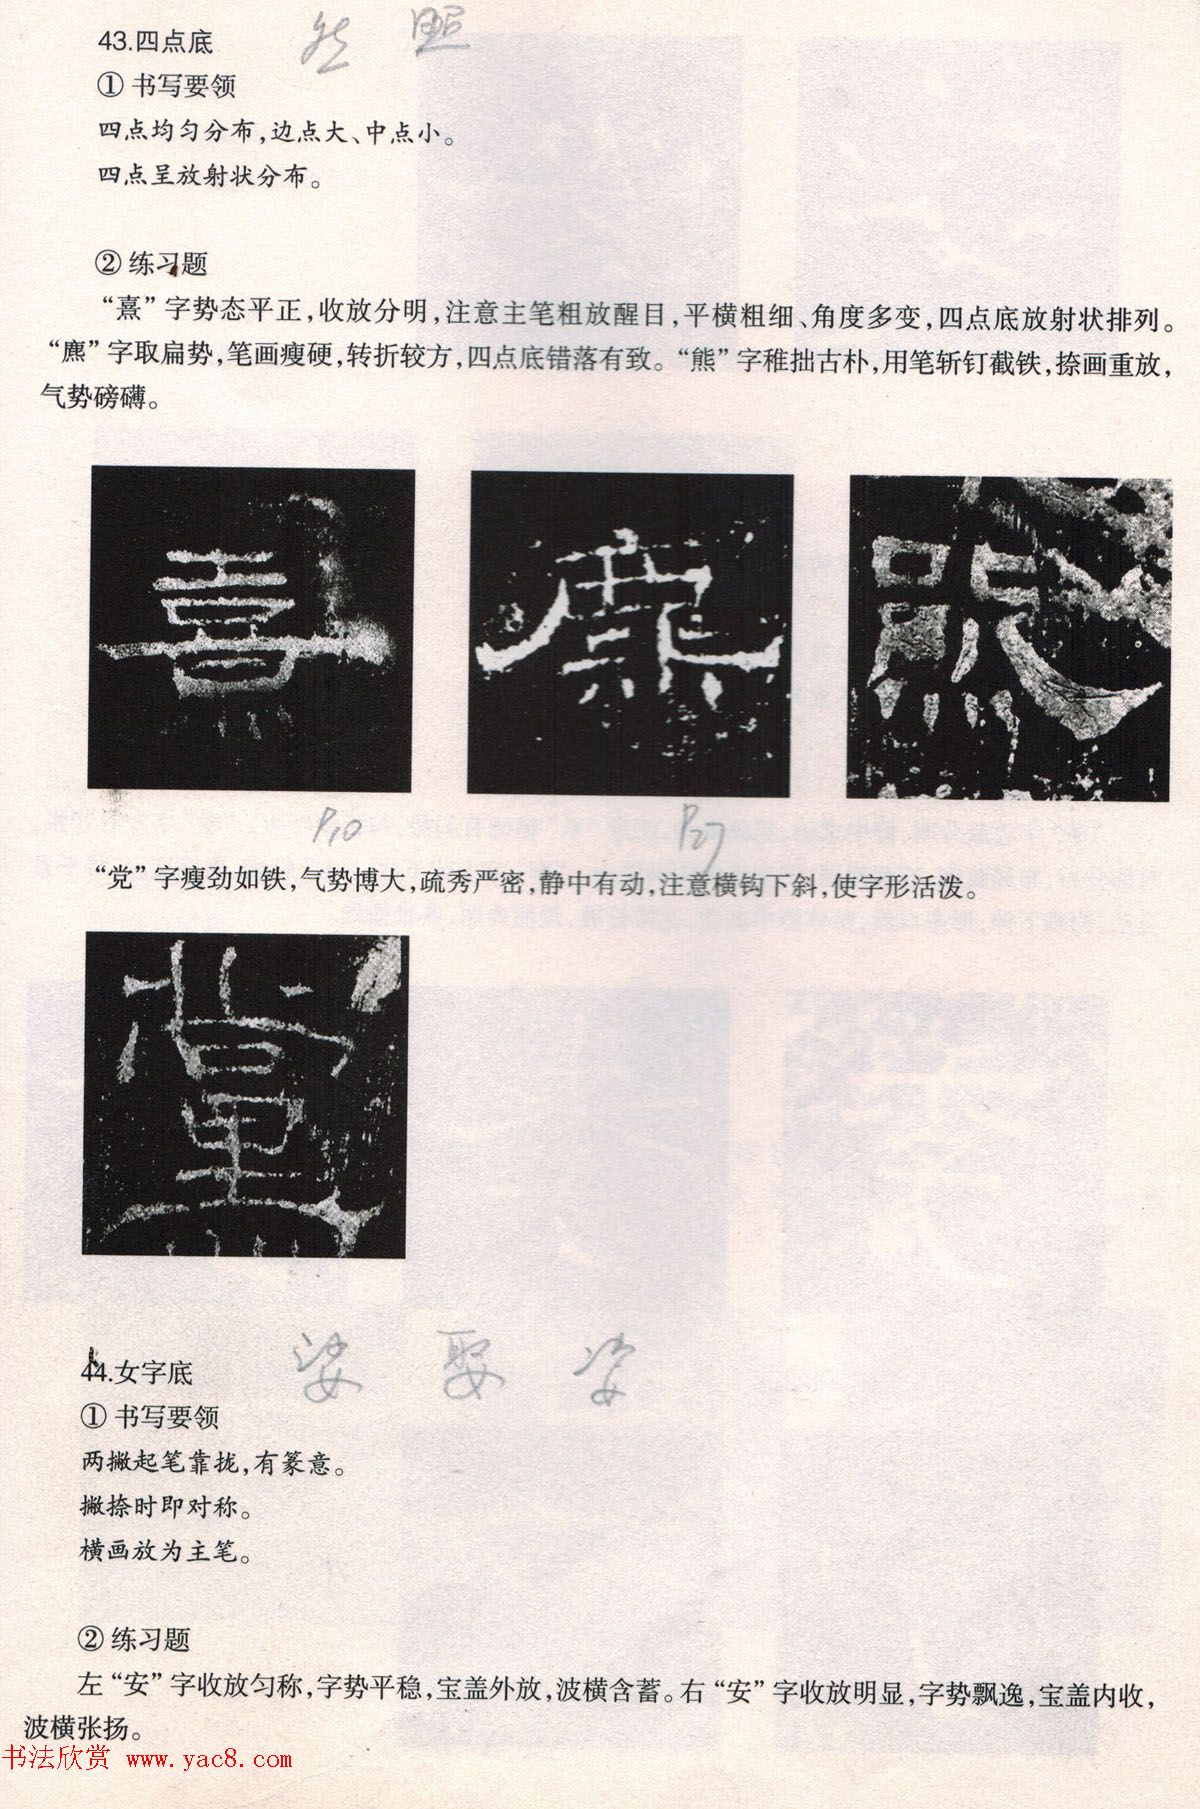 43.四点底 然 照
① 书写要领
四点均匀分布，边点大、中点小。
四点呈放射状分布。
② 练习题
“熹”字势态平正，收放分明，注意主笔粗放醒目，平横粗细、角度多变，四点底放射状排列。
“麃”字取扁势，笔画瘦硬，转折较方，四点底错落有致。“熊”字稚拙古朴，用笔斩钉截铁，捺画重放，
气势磅礴。
熹 麃 熊
P10 P27
“党”字瘦劲如铁，气势博大，疏秀严密，静中有动，注意横钩下斜，使字形活泼。
44.女字底 娶 姿
① 书写要领
两撇起笔靠拢，有篆意。
撇捺时即对称。
横画放为主笔。
② 练习题
左“安”字收放匀称，字势平稳，宝盖外放，波横含蓄。右“安”字收放明显，字势飘逸，宝盖内收，
波横张扬。
书法欣赏 www.yac8.com